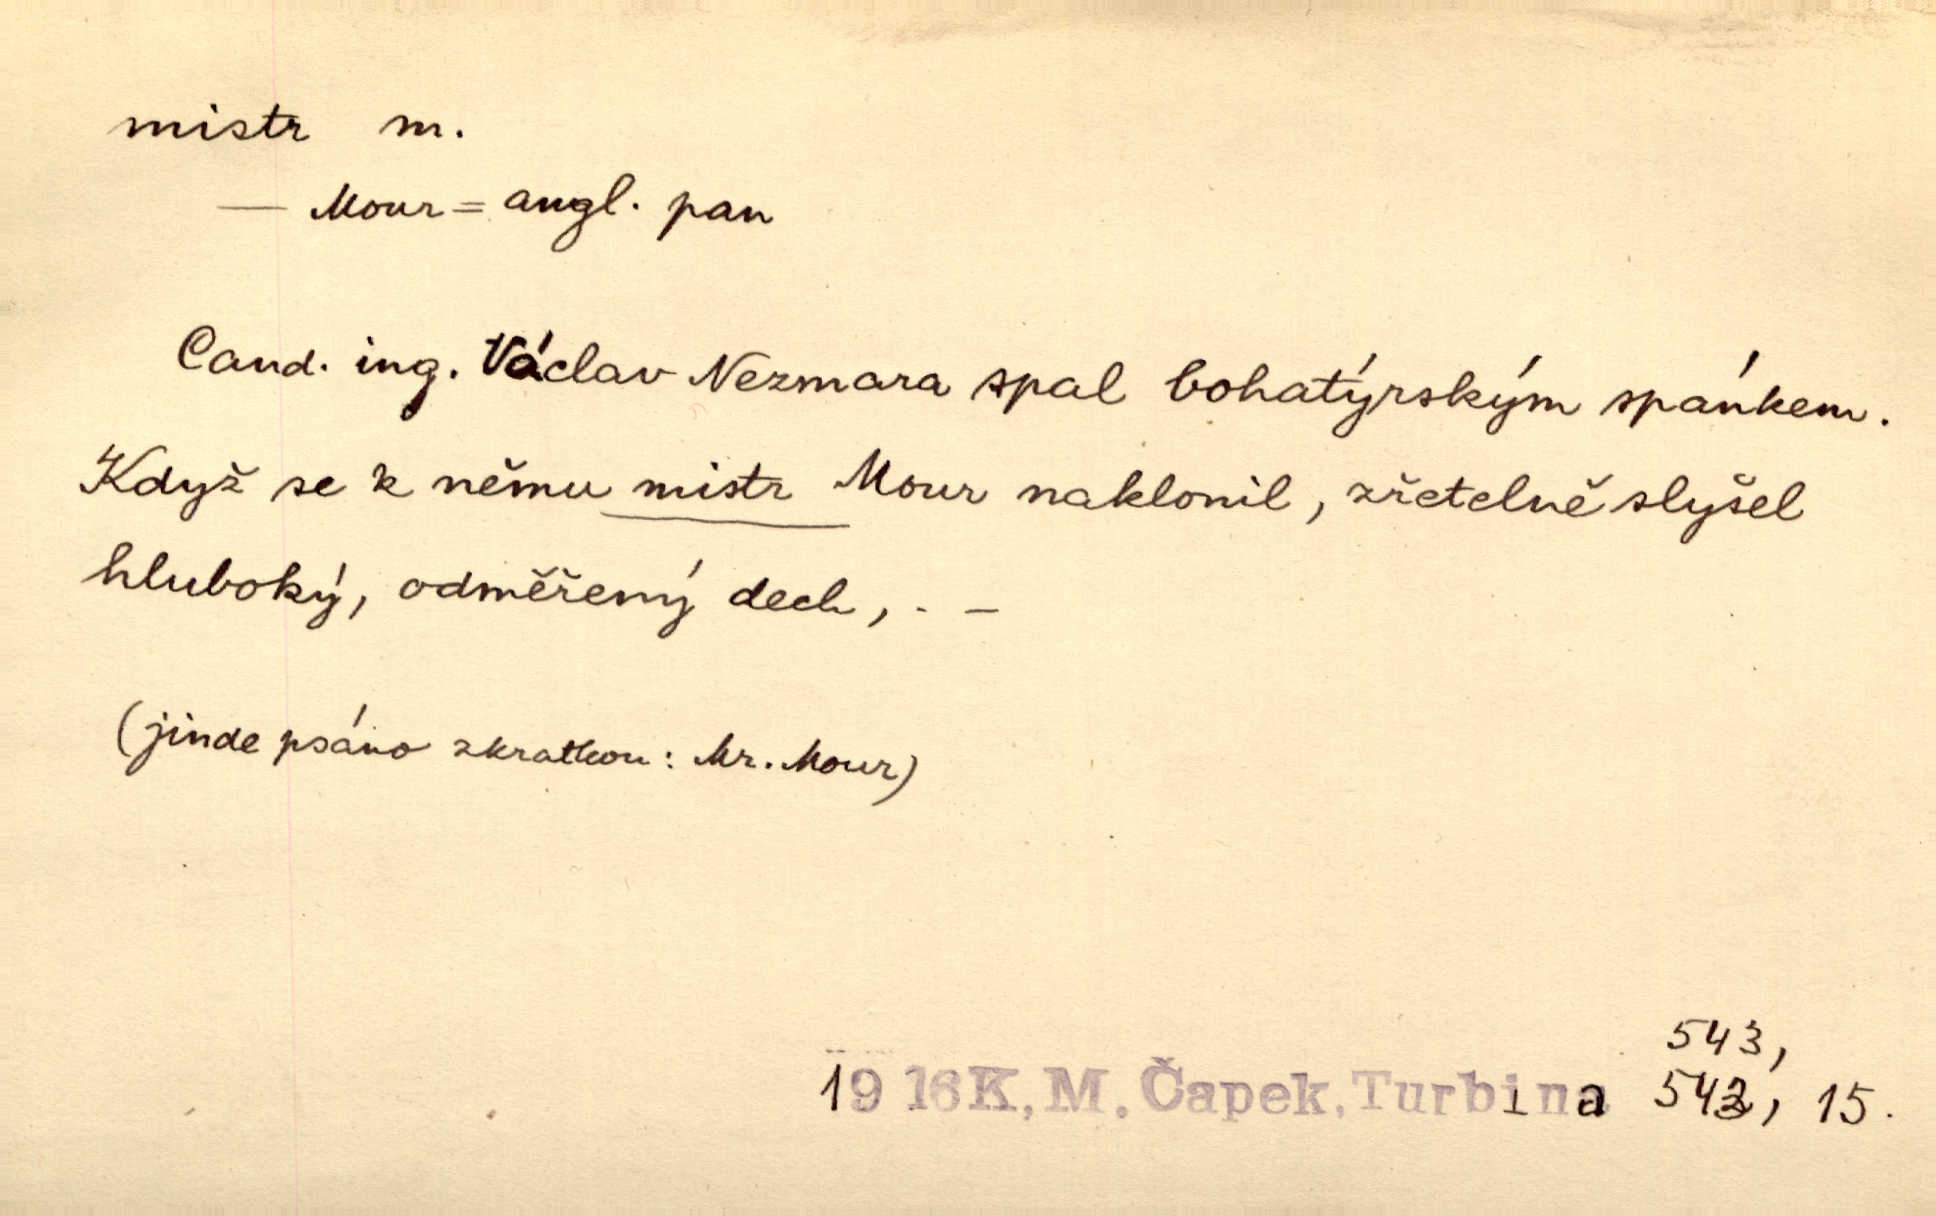 mistr m.
— Mour = angl. pan
Cand. ing. Václav Nezmara spal bohatýrským spánkem.
Když se k němu mistr Mour naklonil, zřetelně slyšel
hluboký, odměřený dech, . –
(jinde psáno zkratkou: Mr. Mour)
543,
1916 K. M. Čapek, Turbina 543, 15.